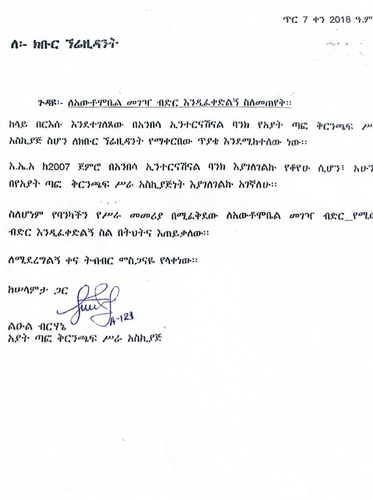 ጥር 7 ቀን 2018 ዓ.ም
ለ፡- ክቡር ፕሬዚዳንት
ጉዳዩ፡- ለአውቶሞቤል መገዣ ብድር እንዲፈቀድልኝ ስለመጠየቅ።
ከላይ በርእሱ እንደተገለጸው በአንበሳ ኢንተርናሽናል ባንክ የአያት ጣፎ ቅርንጫፍ ሥራ
አስኪያጅ ስሆን ለክቡር ፕሬዚዳንት የማቀርበው ጥያቄ እንደሚከተለው ነው።
እ.ኤ.አ ከ2007 ጀምሮ በአንበሳ ኢንተርናሽናል ባንክ እያገለገልኩ የቆየሁ ሲሆን፣ አሁን
በየአያት ጣፎ ቅርንጫፍ ሥራ አስኪያጅነት እያገለገልኩ እገኛለሁ።
ስለሆነም የባንካችን የሥራ መመሪያ በሚፈቅደው ለአውቶሞቤል መገዣ ብድር የሚ
ብድር እንዲፈቀድልኝ ስል በትህትና እጠይቃለው።
ለሚደረግልኝ ቀና ትብብር ምስጋናዬ የላቀነው።
ከሠላምታ ጋር
A-123
ልዑል ብርሃኔ
አያት ጣፎ ቅርንጫፍ ሥራ አስኪያጅ